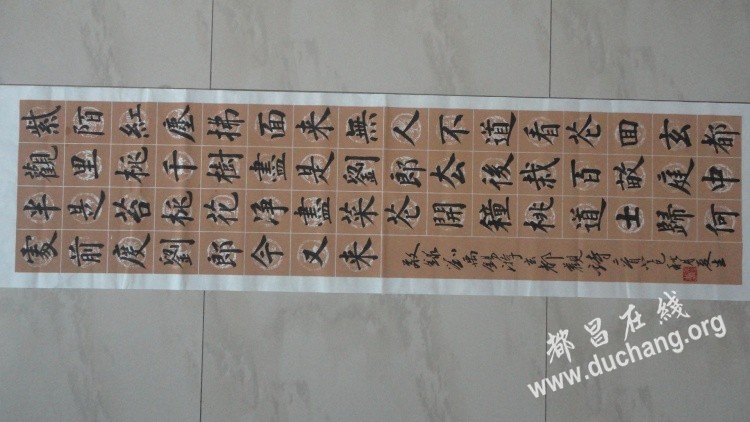 紫陌紅塵拂面来無人不道看花回玄都
觀里桃千樹盡是劉郎去後栽百畝庭中
半是苔桃花净盡菜花開種桃道士歸何
處前度劉郎今又来
敬録劉禹錫游玄都觀詩二首
都昌在綫
www.duchang.org